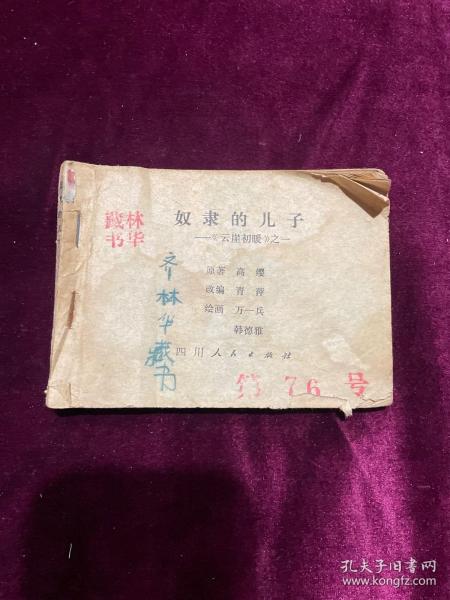 林华
藏书
奴隶的儿子
——《云崖初暖》之一
原著 高缨
改编 青萍
绘画 万一兵
韩德雅
四川人民出版社
齐林华藏书
第76号
孔夫子旧书网
www.kongfz.com